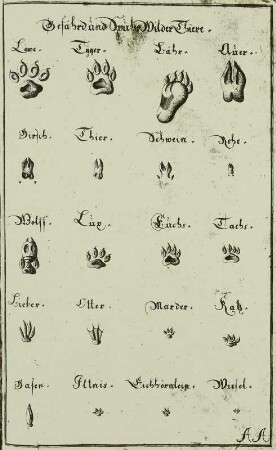 Gefährd und Spuhr Wilder Thiere.
Lowe. Tyger. Bähr. Auer.
Hirsch. Thier. Schwein. Rehe.
Wolff. Lux. Fuchs. Tachs.
Bieber. Otter. Marder. Katz.
Hasen. Iltnis. Eichhörnlein. Wiesel.
AA